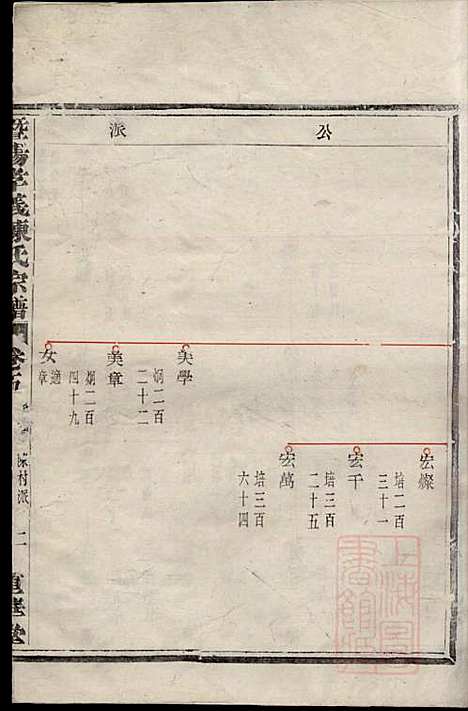 公
派
美學
炯二百
二十二
美章
炯二百
四十九
女
適
章
宏燦
培二百
三十一
宏千
培三百
二十五
宏萬
培三百
六十四
暨陽孝義陳氏宗譜
村派
二
上海圖書館藏